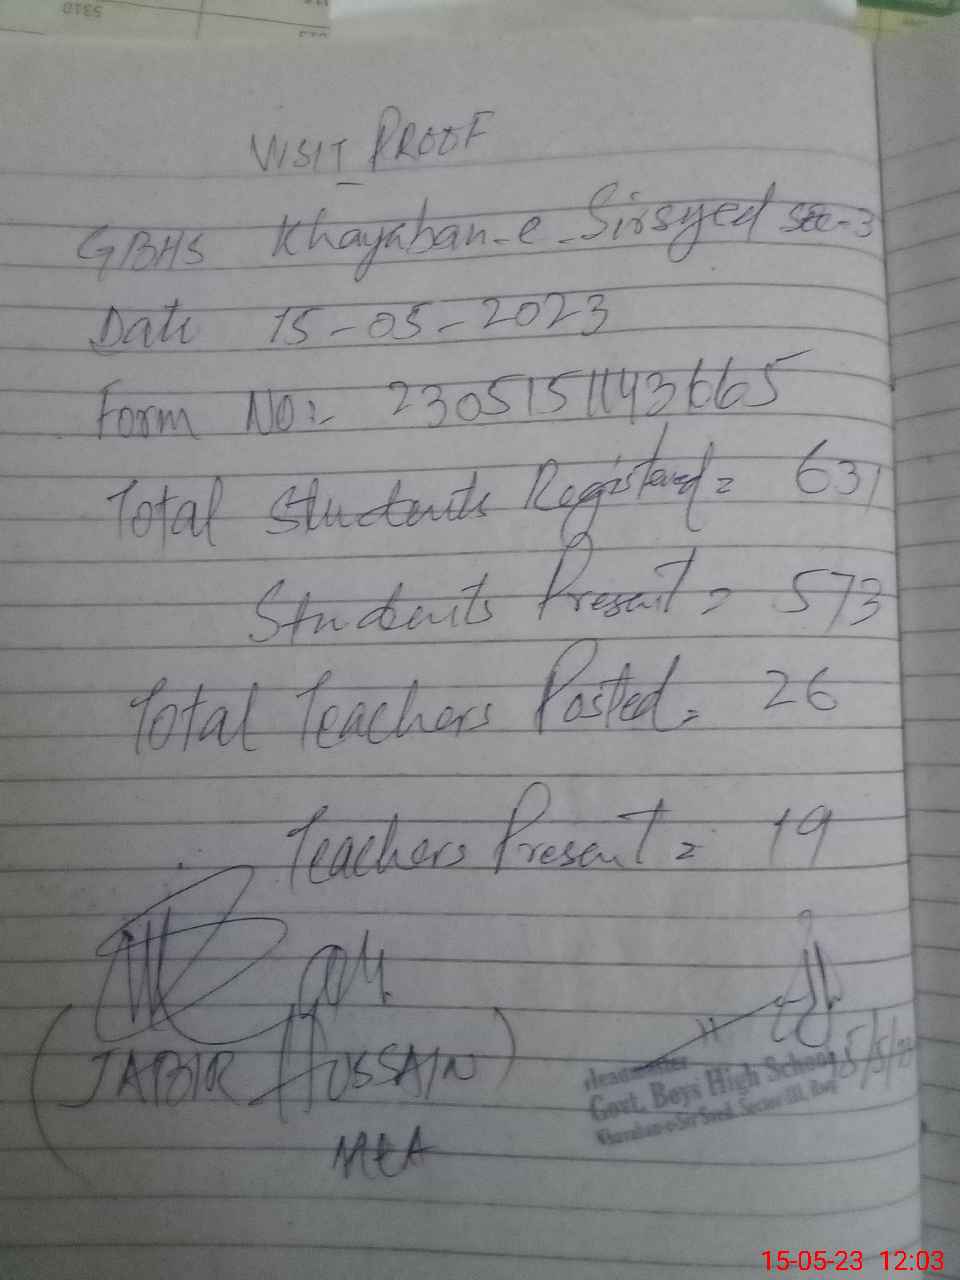 VISIT PROOF
GBHS Khayaban-e-Sirsyed Sec-3
Date 15-05-2023
Form No:- 2305151143665
Total Students Registered = 631
Students Present = 573
Total Teachers Posted = 26
Teachers Present = 19
(JABIR HUSSAIN)
MEA
Headmaster
Govt. Boys High School
Khayaban-e-Sir Syed, Sector-III, Rwp
15/5/23
15-05-23 12:03